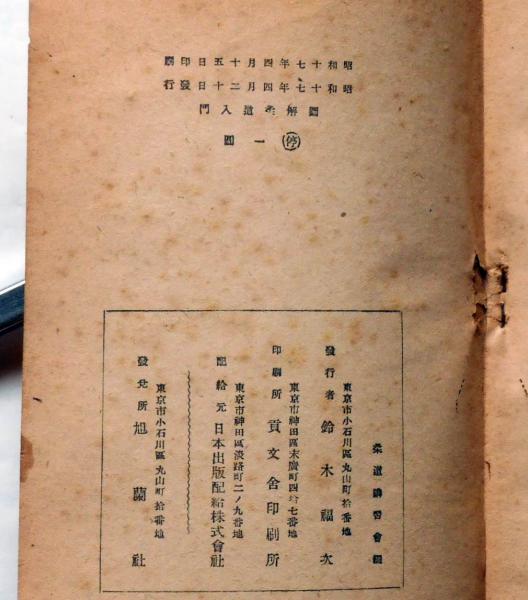 昭和十七年四月十五日印刷
昭和十七年四月二十日發行
圖解柔道入門
停 一圓
柔道講習會編
東京市小石川區丸山町拾番地
發行者 鈴木福次
東京市神田區末廣町四拾七番地
印刷所 貢文舍印刷所
東京市神田區淡路町二ノ九番地
配給元 日本出版配給株式會社
東京市小石川區丸山町拾番地
發兌所 旭蘭社